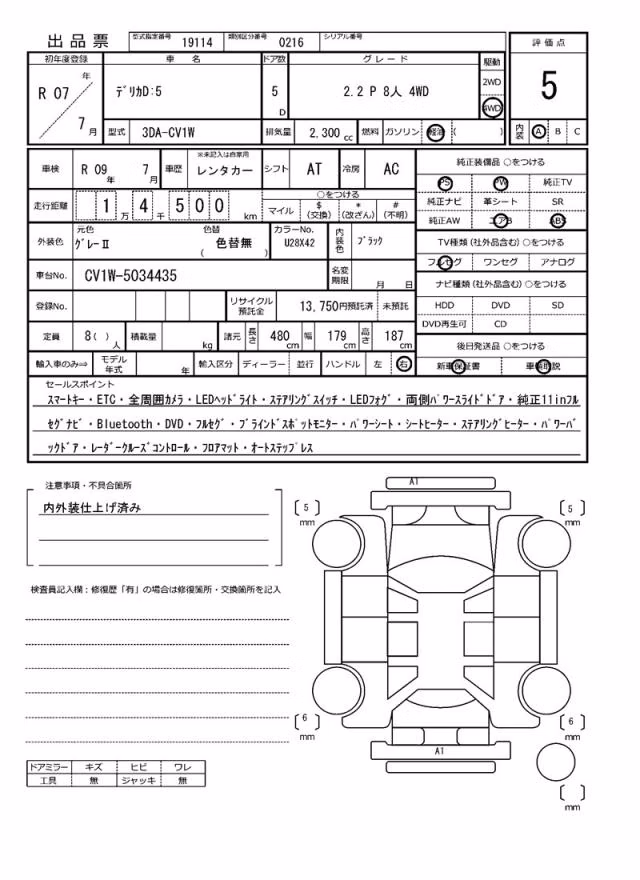 出品票 型式指定番号 19114 類別区分番号 0216 シリアル番号
評価点
初年度登録 車名 ドア数 グレード 駆動
R 07 年 7 月 ﾃﾞﾘｶD:5 5 D 2.2 P 8人 4WD 2WD 4WD
5
型式 3DA-CV1W 排気量 2,300 cc 燃料 ガソリン 軽油 ( )
内装 A B C
車検 R 09 年 7 月 車歴 ※未記入は自家用 レンタカー シフト AT 冷房 AC
走行距離 1 万 4 千 5 0 0 km
○をつける
マイル $ (交換) * (改ざん) # (不明)
外装色 元色 ｸﾞﾚｰⅡ 色替 色替無 ( ) カラーNo. U28X42 内装色 ﾌﾞﾗｯｸ
車台No. CV1W-5034435 名変期限 月 日
登録No. リサイクル預託金 13,750円預託済 未預託
定員 8( ) 人 積載量 kg 諸元 長さ 480 cm 幅 179 cm 高さ 187 cm
輸入車のみ⇒ モデル年式 年 輸入区分 ディーラー・並行 ハンドル 左・右
純正装備品 ○をつける
PS PW 純正TV
純正ナビ 革シート SR
純正AW エアB ABS
TV種類 (社外品含む) ○をつける
フルセグ ワンセグ アナログ
ナビ種類 (社外品含む) ○をつける
HDD DVD SD
DVD再生可 CD
後日発送品 ○をつける
新車保証書 車輌取説
セールスポイント
ｽﾏｰﾄｷｰ・ETC・全周囲ｶﾒﾗ・LEDﾍｯﾄﾞﾗｲﾄ・ｽﾃｱﾘﾝｸﾞｽｲｯﾁ・LEDﾌｫｸﾞ・両側ﾊﾟﾜｰｽﾗｲﾄﾞﾄﾞｱ・純正11inﾌﾙ
ｾｸﾞﾅﾋﾞ・Bluetooth・DVD・ﾌﾙｾｸﾞ・ﾌﾞﾗｲﾝﾄﾞｽﾎﾟｯﾄﾓﾆﾀｰ・ﾊﾟﾜｰｼｰﾄ・ｼｰﾄﾋｰﾀｰ・ｽﾃｱﾘﾝｸﾞﾋｰﾀｰ・ﾊﾟﾜｰﾊﾞ
ｯｸﾄﾞｱ・ﾚｰﾀﾞｰｸﾙｰｽﾞｺﾝﾄﾛｰﾙ・ﾌﾛｱﾏｯﾄ・ｵｰﾄｽﾃｯﾌﾟﾚｽ
注意事項・不具合箇所
内外装仕上げ済み
検査員記入欄：修復歴「有」の場合は修復箇所・交換箇所を記入
ドアミラー キズ ヒビ ワレ
工具 無 ジャッキ 無
A1
5 mm
5 mm
6 mm
6 mm
A1
mm